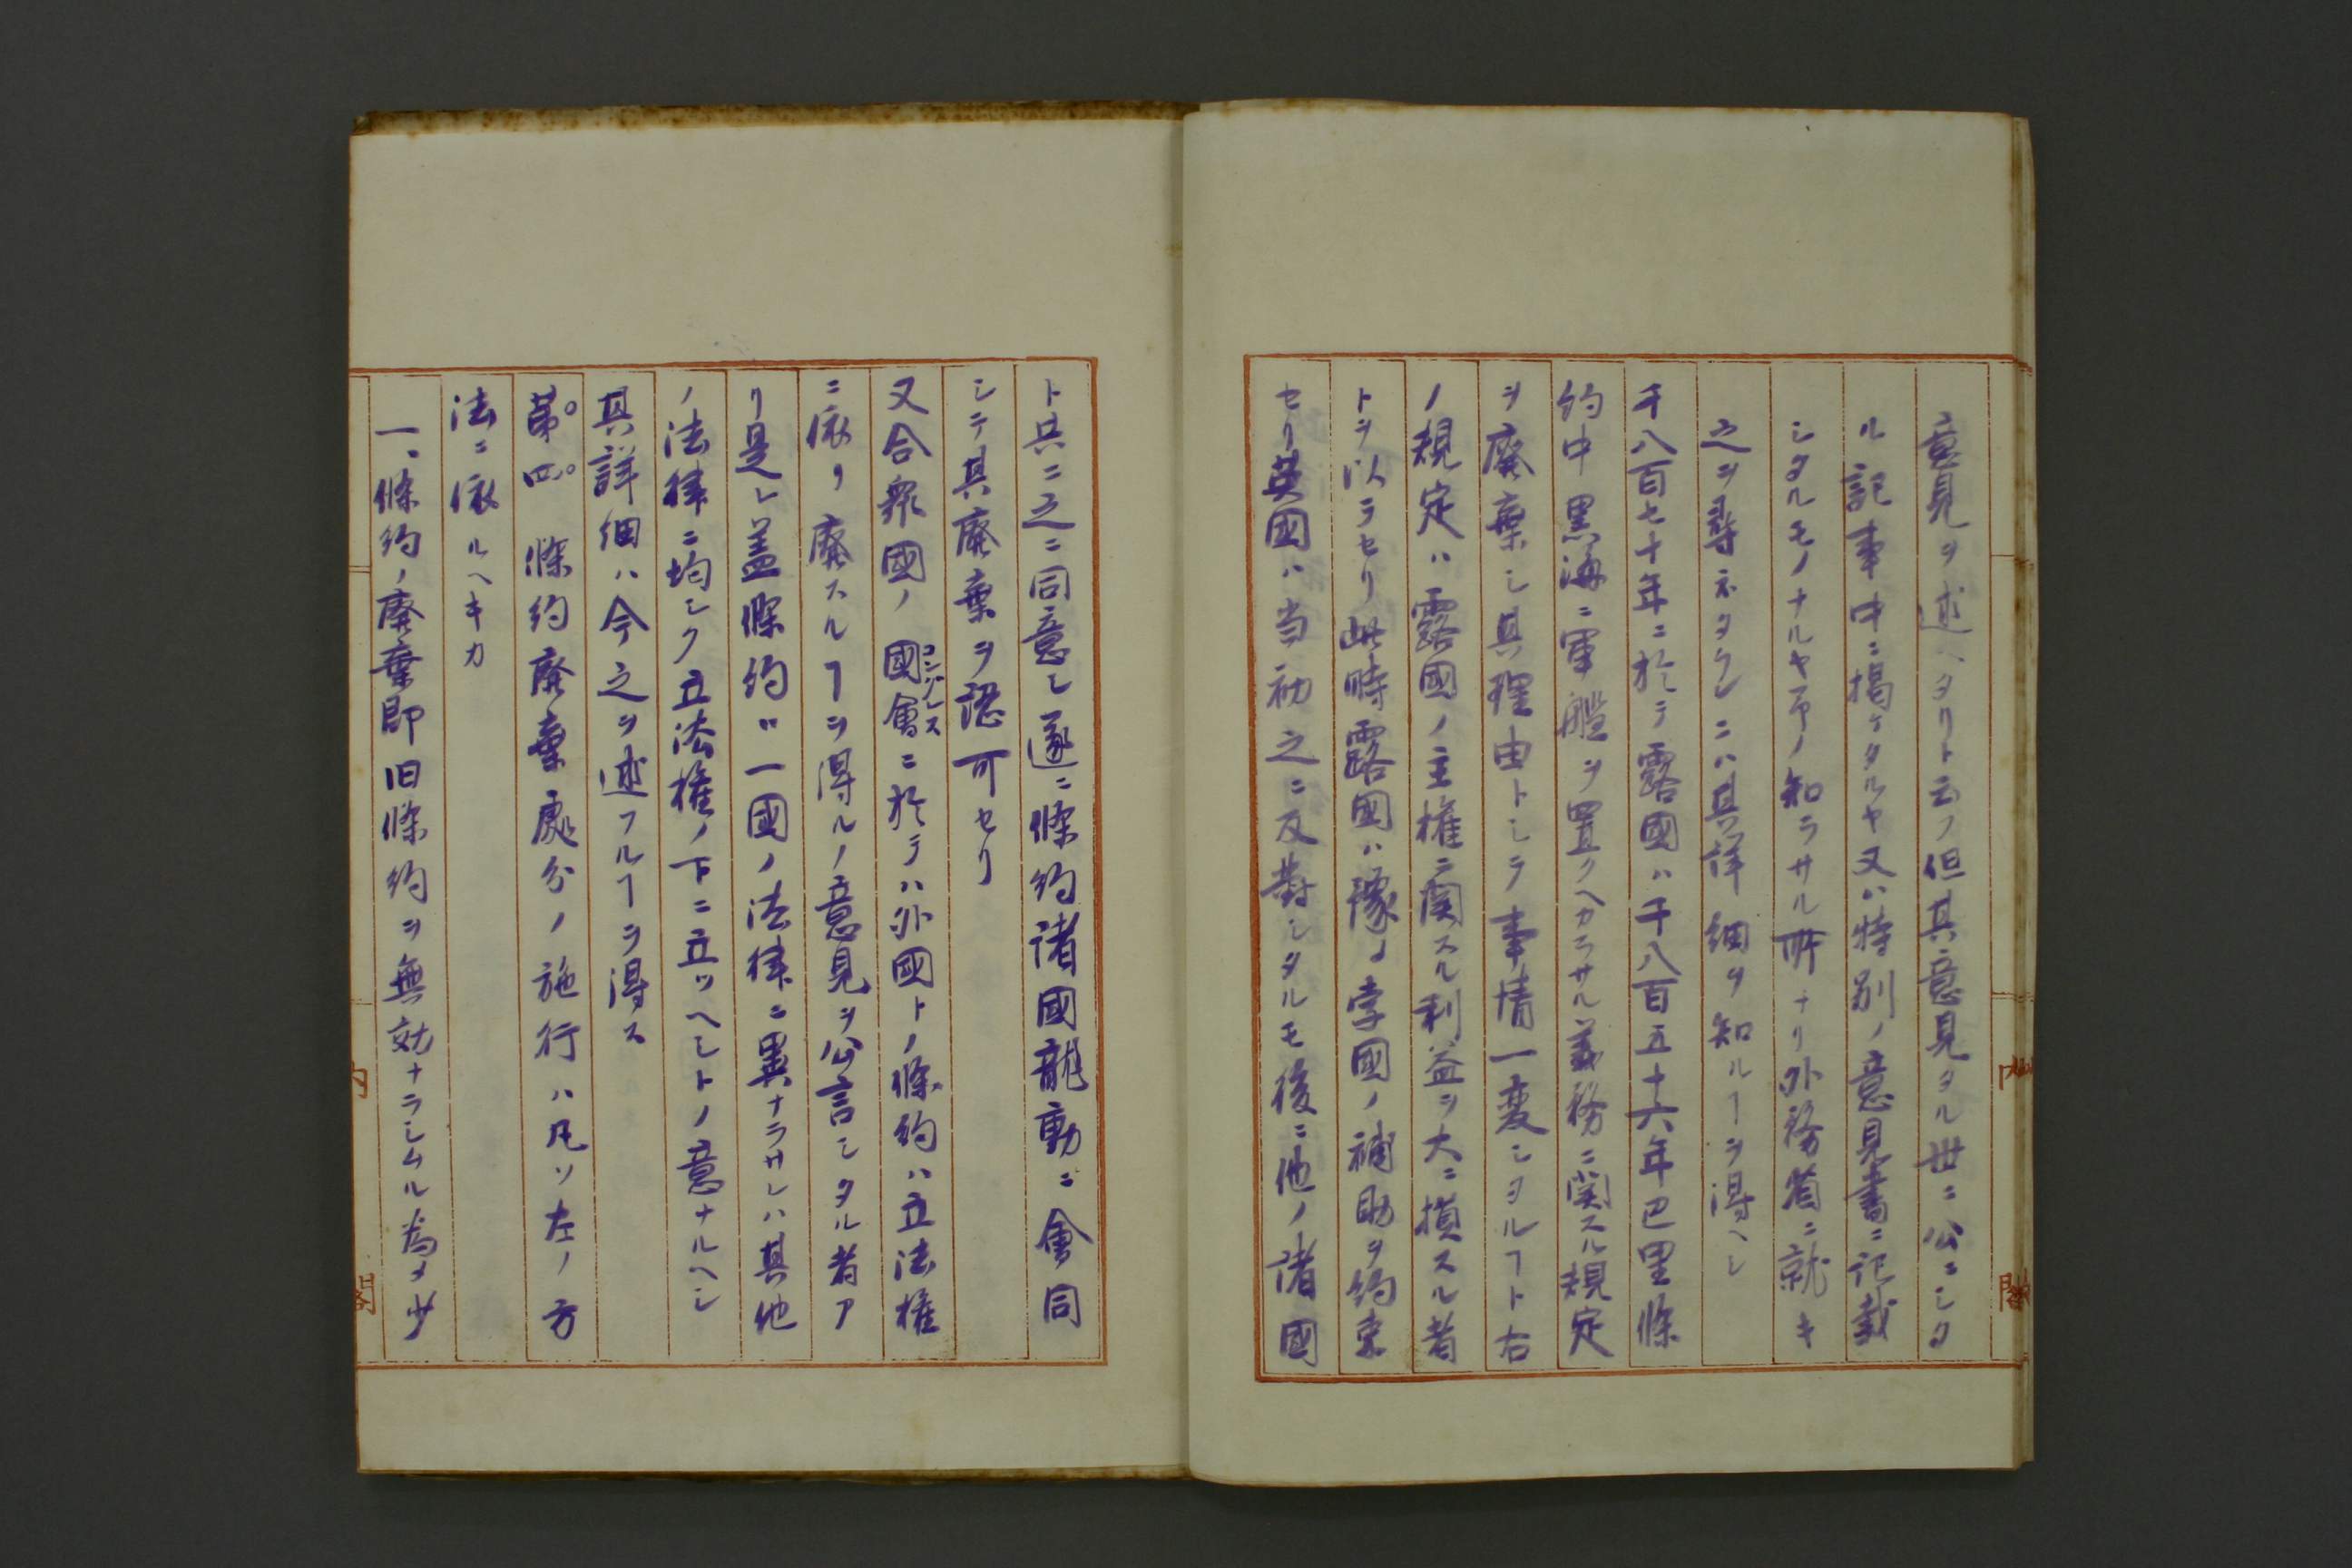 意見ヲ述ヘタリト云フ但其意見タル世ニ公ニシタ
ル記事中ニ掲ケタルヤ又ハ特別ノ意見書ニ記載
シタルモノナルヤ予ノ知ラサル所ナリ外務省ニ就キ
之ヲ尋ネタランニハ其詳細ヲ知ルヿヲ得ヘシ
千八百七十年ニ於テ露國ハ千八百五十六年巴里條
約中黒海ニ軍艦ヲ置クヘカラサル義務ニ関スル規定
ヲ廢棄シ其理由トシテ事情一変シタルヿト右
ノ規定ハ露國ノ主權ニ関スル利益ヲ大ニ損スル者
トヲ以テセリ此時露國ハ豫メ孛國ノ補助ヲ約束
セリ英國ハ当初之ニ反對シタルモ後ニ他ノ諸國
ト共ニ之ニ同意シ遂ニ條約諸國龍動ニ會同
シテ其廢棄ヲ認可セリ
又合衆國ノ國會ニ於テハ外國トノ條約ハ立法權
コングレス
ニ依リ廢スルヿヲ得ルノ意見ヲ公言シタル者ア
リ是レ盖條約ハ一國ノ法律ニ異ナラサレハ其他
ノ法律ニ均シク立法權ノ下ニ立ツヘシトノ意ナルヘシ
其詳細ハ今之ヲ述フルヿヲ得ス
第四 條約廢棄處分ノ施行ハ凡ソ左ノ方
法ニ依ルヘキカ
一、條約ノ廢棄即旧條約ヲ無効ナラシムル為メ少
内
閣